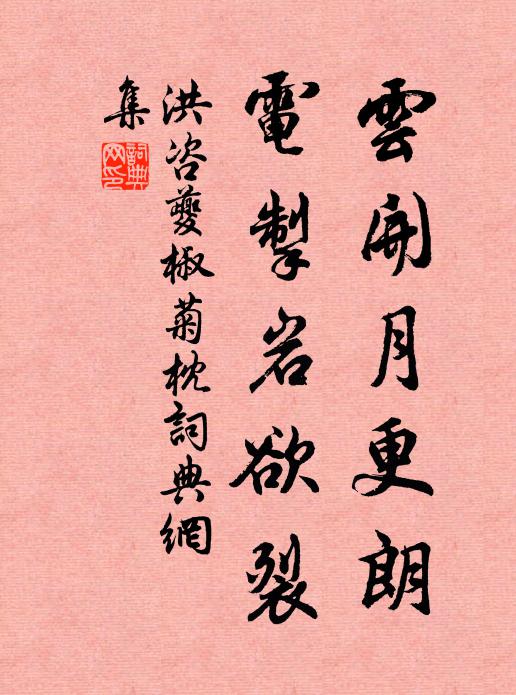 雲開月更朗
電掣岩欲裂
洪咨夔椒菊枕詞典網
集
詞典网印